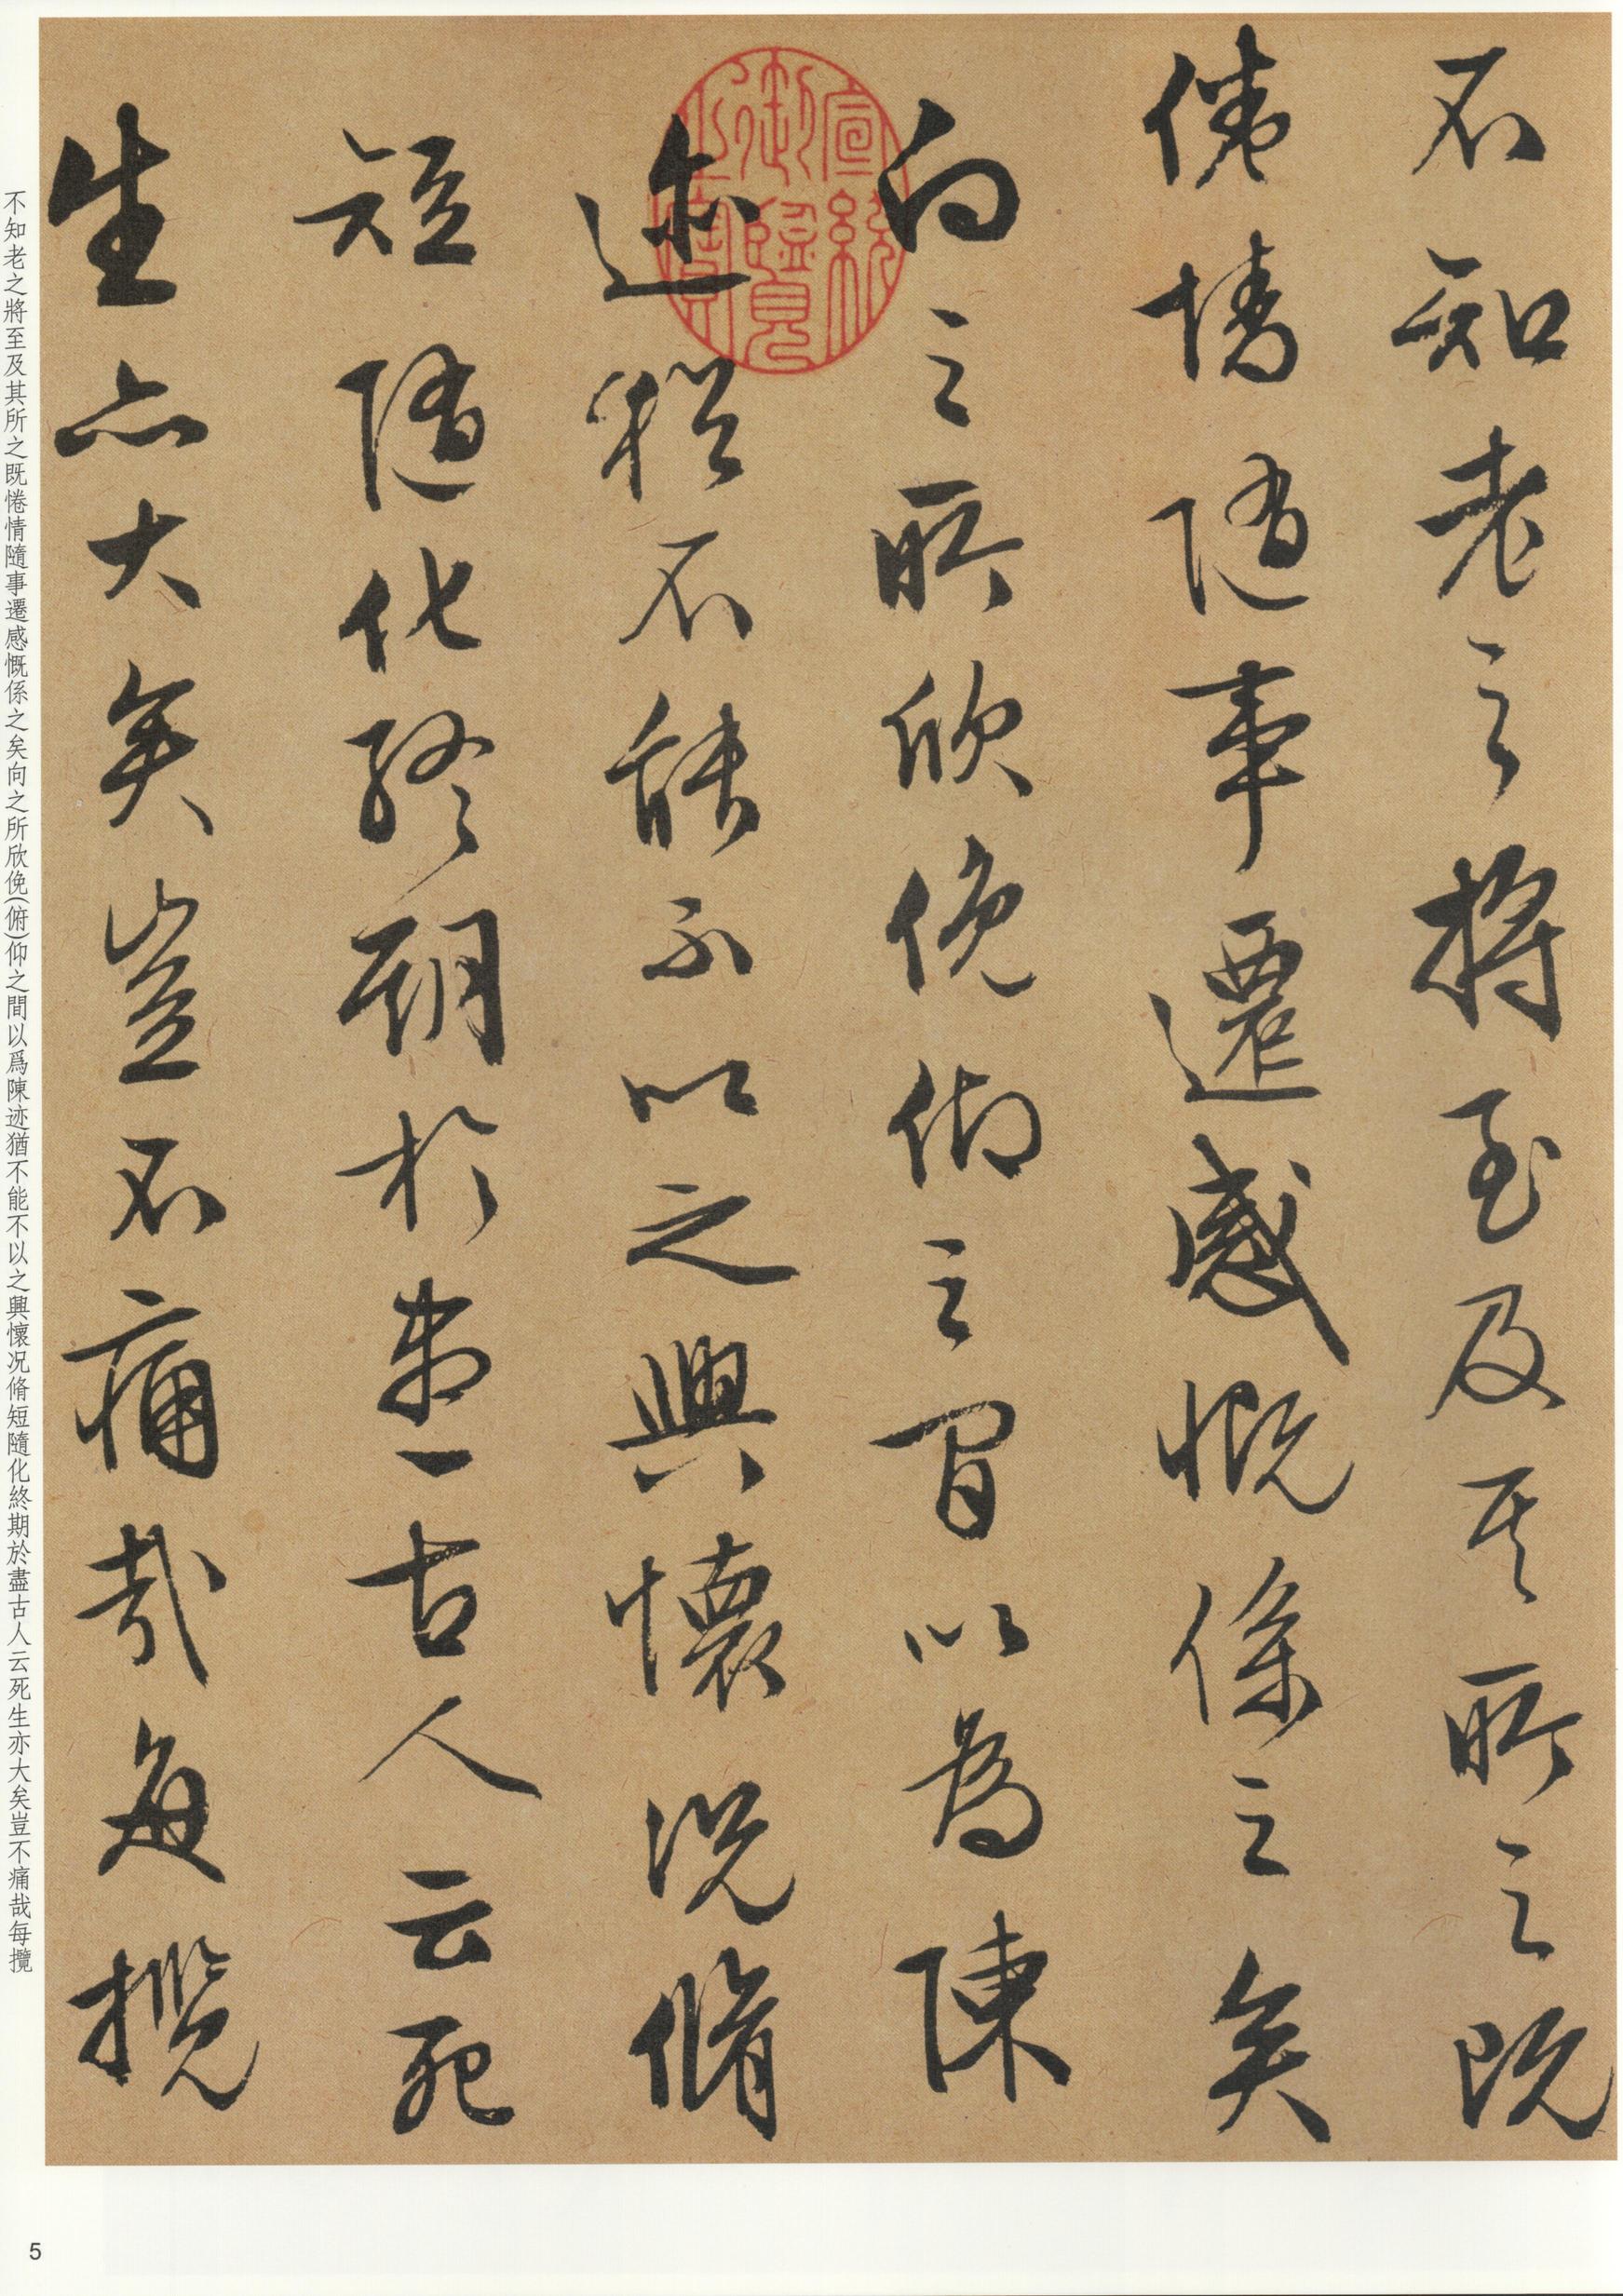 不知老之將至及其所之既
惓情隨事遷感慨係之矣
向之所欣俛仰之間以為陳
迹猶不能不以之興懷況脩
短隨化終期於盡古人云死
生亦大矣豈不痛哉每攬
宣統御覽之寶
不知老之將至及其所之既惓情隨事遷感慨係之矣向之所欣俛(俯)仰之間以爲陳迹猶不能不以之興懷況脩短隨化終期於盡古人云死生亦大矣豈不痛哉每攬
5